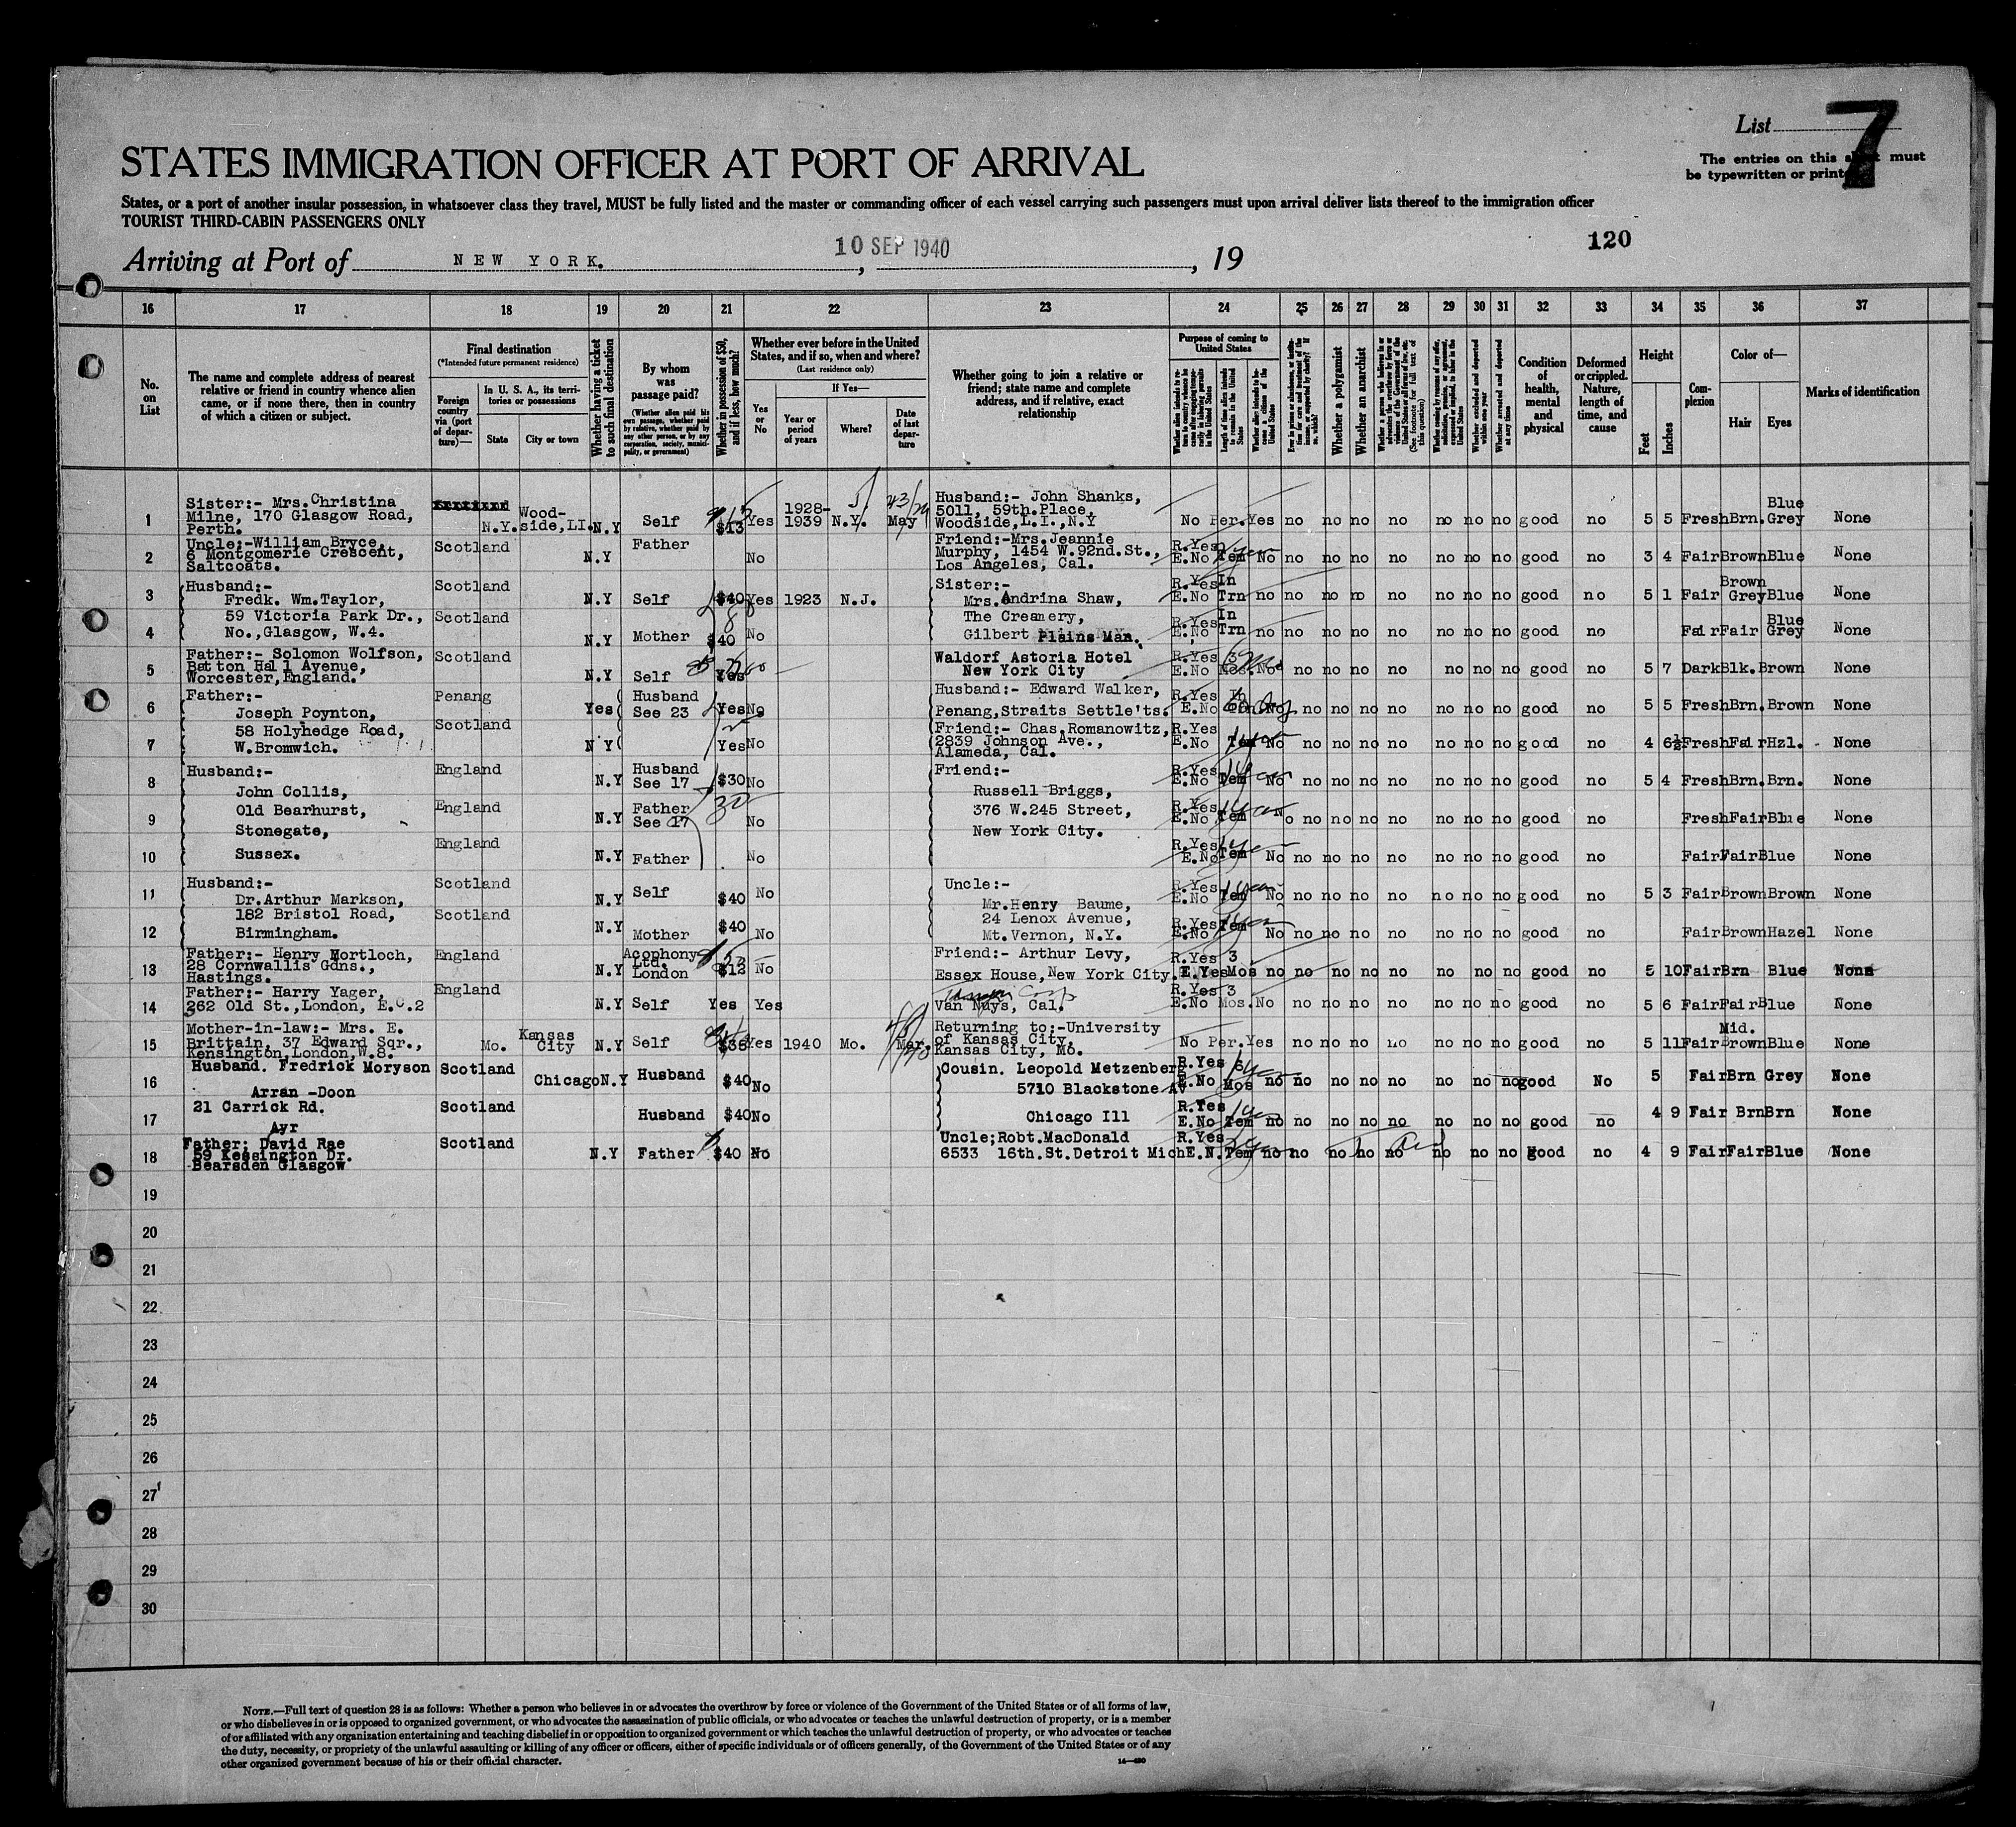 List 7
STATES IMMIGRATION OFFICER AT PORT OF ARRIVAL
The entries on this must
be typewritten or
States, or a port of another insular possession, in whatsoever class they travel, MUST be fully listed and the master or commanding officer of each vessel carrying such passengers must upon arrival deliver lists thereof to the immigration officer
TOURIST THIRD-CABIN PASSENGERS ONLY
Arriving at Port of NEW YORK. , 10 SEP 1940 , 19
120
16 17 18 19 20 21 22 23 24 25 26 27 28 29 30 31 32 33 34 35 36 37
No. on List
The name and complete address of nearest relative or friend in country whence alien came, or if none there, then in country of which a citizen or subject.
Final destination
(*Intended future permanent residence)
Foreign country via (port of departure)—
In U. S. A., its territories or possessions
State
City or town
Whether having a ticket to such final destination
By whom was passage paid?
(Whether alien paid his own passage, whether paid by relative, whether paid by any other person, or by any corporation, society, municipality, or government)
Whether in possession of $50, and if less, how much?
Whether ever before in the United States, and if so, when and where?
(Last residence only)
Yes or No
If Yes—
Year or period of years
Where?
Date of last departure
Whether going to join a relative or friend; state name and complete address, and if relative, exact relationship
Purpose of coming to United States
Whether a polygamist
Whether an anarchist
Condition of health, mental and physical
Deformed or crippled. Nature, length of time, and cause
Height
Feet
Inches
Complexion
Color of—
Hair
Eyes
Marks of identification
1 Sister:- Mrs.Christina Milne, 170 Glasgow Road, Perth. N.Y. Wood-side,LI. N.Y Self $13 Yes 1928-1939 N.Y. May Husband:- John Shanks, 5011, 59th.Place, Woodside,L.I.,N.Y No Per. Yes no no no no no no no good no 5 5 Fresh Brn. Blue Grey None
2 Uncle:-William Bryce, 6 Montgomerie Crescent, Saltcoats. Scotland N.Y Father No Friend:-Mrs.Jeannie Murphy, 1454 W.92nd.St., Los Angeles, Cal. R.Yes E.No Tem No no no no no no no no good no 3 4 Fair Brown Blue None
3 Husband:- Fredk. Wm.Taylor, Scotland N.Y Self $40 Yes 1923 N.J. Sister:- Mrs.Andrina Shaw, R.Yes E.No In Trn no no no no no no no no good no 5 1 Fair Brown Grey Blue None
4 59 Victoria Park Dr., No.,Glasgow, W.4. Scotland N.Y Mother $40 No The Creamery, Gilbert Plains Man. R.Yes E.No In Trn no no no no no no no no good no Fair Fair Blue Grey None
5 Father:- Solomon Wolfson, Batton Hall Avenue, Worcester,England. Scotland N.Y Self Yes Waldorf Astoria Hotel New York City R.Yes E.No 3 Mos. No no no no no no no no good no 5 7 Dark Blk. Brown None
6 Father:- Joseph Poynton, Penang Scotland Yes Husband See 23 Yes No Husband:- Edward Walker, Penang,Straits Settle'ts. R.Yes E.No In Trn No no no no no no no no good no 5 5 Fresh Brn. Brown None
7 58 Holyhedge Road, W.Bromwich. N Y Yes No Friend:- Chas.Romanowitz, 2839 Johnson Ave., Alameda, Cal. R.Yes E.No Tem No no no no no no no no good no 4 6½ Fresh Fair Hzl. None
8 Husband:- John Collis, England N.Y Husband See 17 $30 No Friend:- Russell Briggs, R.Yes E.No Tem No no no no no no no no good no 5 4 Fresh Brn. Brn. None
9 Old Bearhurst, Stonegate, England N.Y Father See 17 No 376 W.245 Street, New York City. R.Yes E.No Tem No no no no no no no good no Fresh Fair Blue None
10 Sussex. England N.Y Father No R.Yes E.No Tem No no no no no no no no good no Fair Fair Blue None
11 Husband:- Dr.Arthur Markson, Scotland N.Y Self $40 No Uncle:- Mr.Henry Baume, R.Yes E.No Tem No no no no no no no no good no 5 3 Fair Brown Brown None
12 182 Bristol Road, Birmingham. Scotland N.Y Mother $40 No 24 Lenox Avenue, Mt.Vernon, N.Y. R.Yes E.No Tem No no no no no no no no good no Fair Brown Hazel None
13 Father:- Henry Mortloch, 28 Cornwallis Gdns., Hastings. England N.Y Acophony Ltd. London $12 No Friend:- Arthur Levy, Essex House,New York City. R.Yes E.Yes 3 Mos no no no no no no no no good no 5 10 Fair Brn Blue None
14 Father:- Harry Yager, 262 Old St.,London, E.C.2 England N.Y Self Yes Yes Van Nuys, Cal. R.Yes E.No 3 Mos. No no no no no no no no good no 5 6 Fair Fair Blue None
15 Mother-in-law:- Mrs. E. Brittain, 37 Edward Sqr., Kensington,London,W.8. Mo. Kansas City N.Y Self $35 Yes 1940 Mo. Mar. Returning to:-University of Kansas City, Kansas City, Mo. No Per. Yes no no no no no no no good no 5 11 Fair Mid. Brown Blue None
16 Husband. Fredrick Moryson Arran -Doon Scotland Chicago N.Y Husband $40 No Cousin. Leopold Metzenberg 5710 Blackstone Av R.Yes E.No 6 Mos no no no no no no no no good No 5 Fair Brn Grey None
17 21 Carrick Rd. Ayr Scotland Husband $40 No Chicago Ill R.Yes E.No Tem no no no no no no no no good no 4 9 Fair Brn Brn None
18 Father; David Rae 59 Kessington Dr. Bearsden Glasgow Scotland N.Y Father $40 No Uncle;Robt.MacDonald 6533 16th.St.Detroit Mich R.Yes E.N. Tem no no no no no no no no good no 4 9 Fair Fair Blue None
19
20
21
22
23
24
25
26
27
28
29
30
NOTE.—Full text of question 28 is as follows: Whether a person who believes in or advocates the overthrow by force or violence of the Government of the United States or of all forms of law,
or who disbelieves in or is opposed to organized government, or who advocates the assassination of public officials, or who advocates or teaches the unlawful destruction of property, or is a member
of or affiliated with any organization entertaining and teaching disbelief in or opposition to organized government or which teaches the unlawful destruction of property, or who advocates or teaches
the duty, necessity, or propriety of the unlawful assaulting or killing of any officer or officers, either of specific individuals or of officers generally, of the Government of the United States or of any
other organized government because of his or their official character.